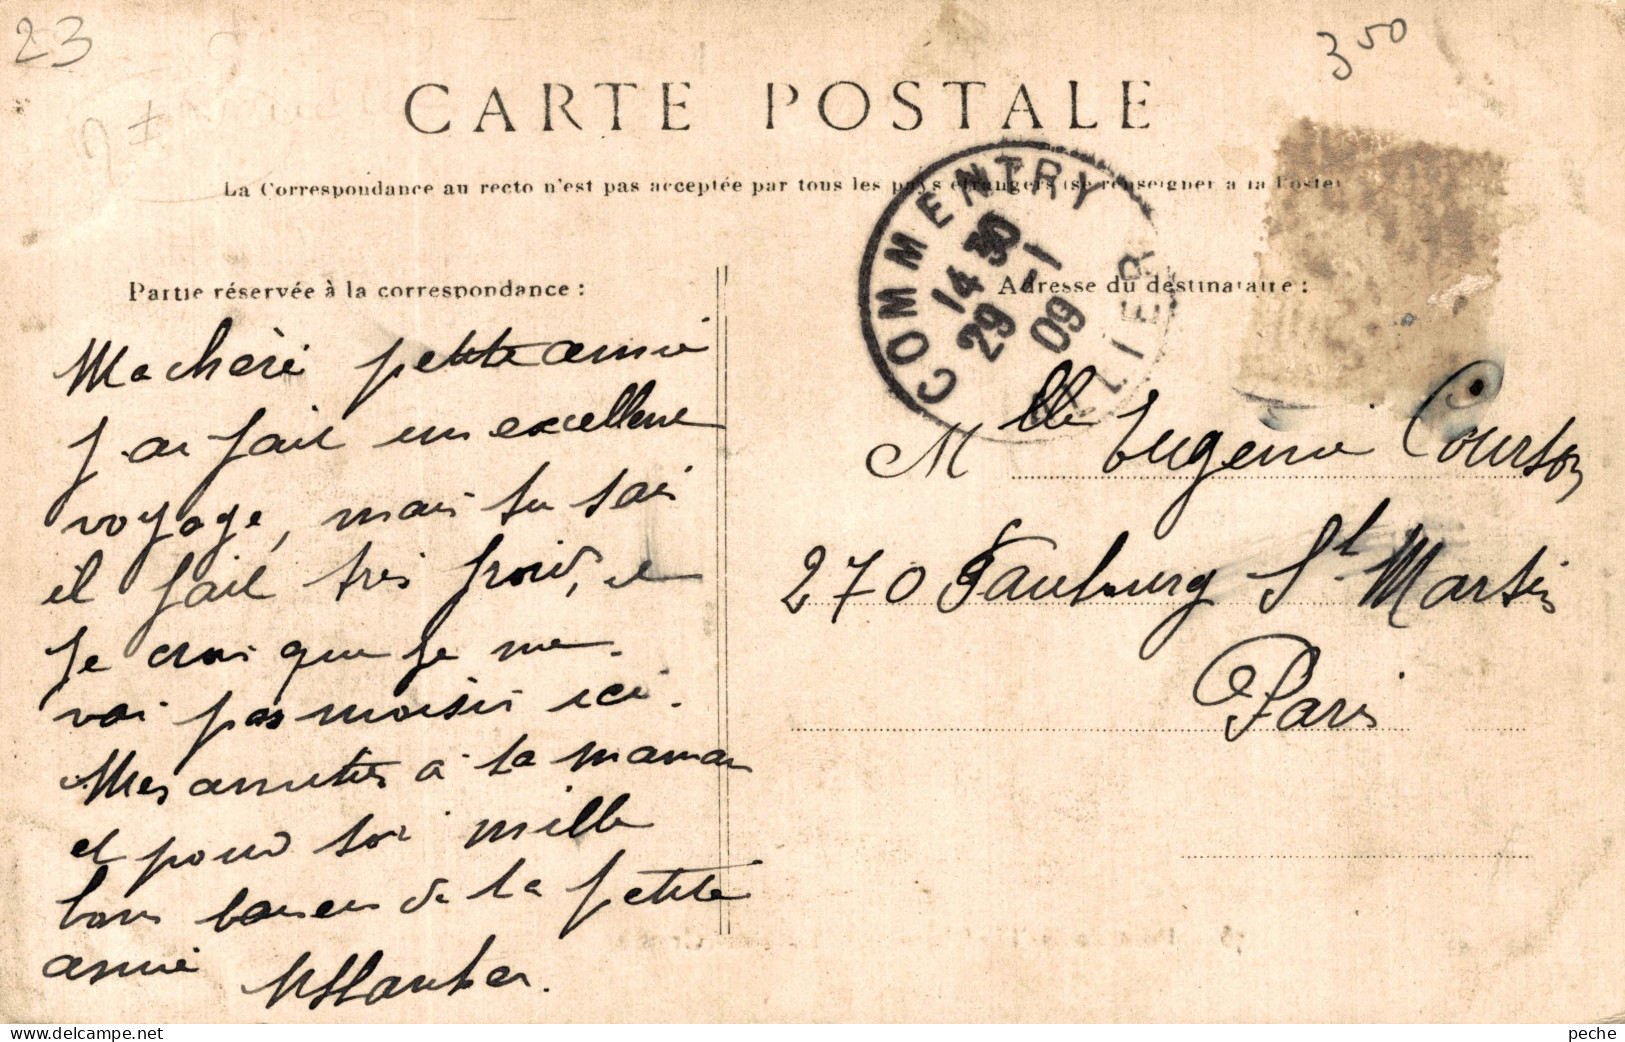 23
3 50
CARTE POSTALE
La Correspondance au recto n'est pas acceptée par tous les pays étrangers (se renseigner à la Poste)
COMMENTRY
14 30
29 -1
09
ALLIER
Partie réservée à la correspondance :
Adresse du destinataire :
Ma chère petite amie
J'ai fait un excellent
voyage, mais tu sais
il fait très froid, et
je crois que je me
vai pas moisir ici.
Mes amitiés à ta maman
et pour toi mille
bons baisers de ta petite
amie
Mlle Eugénie Courson
270 Faubourg St Martin
Paris
peche